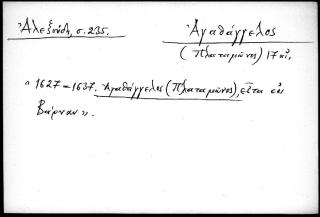 Ἀλεξούδη, σ. 235.
Ἀγαθάγγελος
(Πλαταμῶνος) 17 αἰ.
" 1627 - 1637. Ἀγαθάγγελος (Πλαταμῶνος), εἶτα εἰς
Βάρναν ".